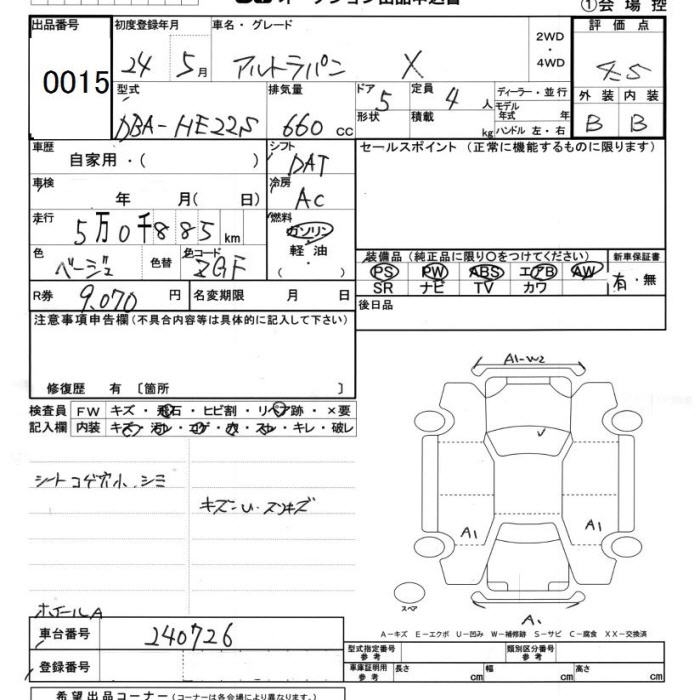 オークション出品申込書 ①会場控
出品番号 初度登録年月 車名・グレード 評価点
0015 24年 5月 アルトラパン X 2WD・4WD 4.5
型式 排気量 ドア 定員 ディーラー・並行 外装 内装
DBA-HE22S 660 cc 5 4 人 モデル年式 年 B B
形状 積載 kg ハンドル 左・右
車歴 シフト セールスポイント (正常に機能するものに限ります)
自家用・( ) DAT
車検 冷房
年 月( 日) AC
走行 燃料
5万0千885 km ガソリン
軽・油
・( )
色 色替 色コード 装備品 (純正品に限り〇をつけてください) 新車保証書
ベージュ ZGF PS PW ABS エアB AW 有・無
SR ナビ TV カワ
R券 9,070 円 名変期限 月 日
後日品
注意事項申告欄(不具合内容等は具体的に記入して下さい)
修復歴 有 [箇所 ]
検査員 FW キズ・飛石・ヒビ割・リペア跡・×要
記入欄 内装 キズ・汚レ・コゲ・穴・スレ・キレ・破レ
シートコゲ穴小、シミ
キズ-U・スリキズ
ホイールA
A1-W2
A1 A1
スペア
A1
A-キズ E-エクボ U-凹み W-補修跡 S-サビ C-腐食 XX-交換済
車台番号 240726
登録番号
型式指定番号 参考 類別区分番号 参考
車庫証明用 参考 長さ cm 幅 cm 高さ cm
希望出品コーナー (コーナーは各会場により異なります。)